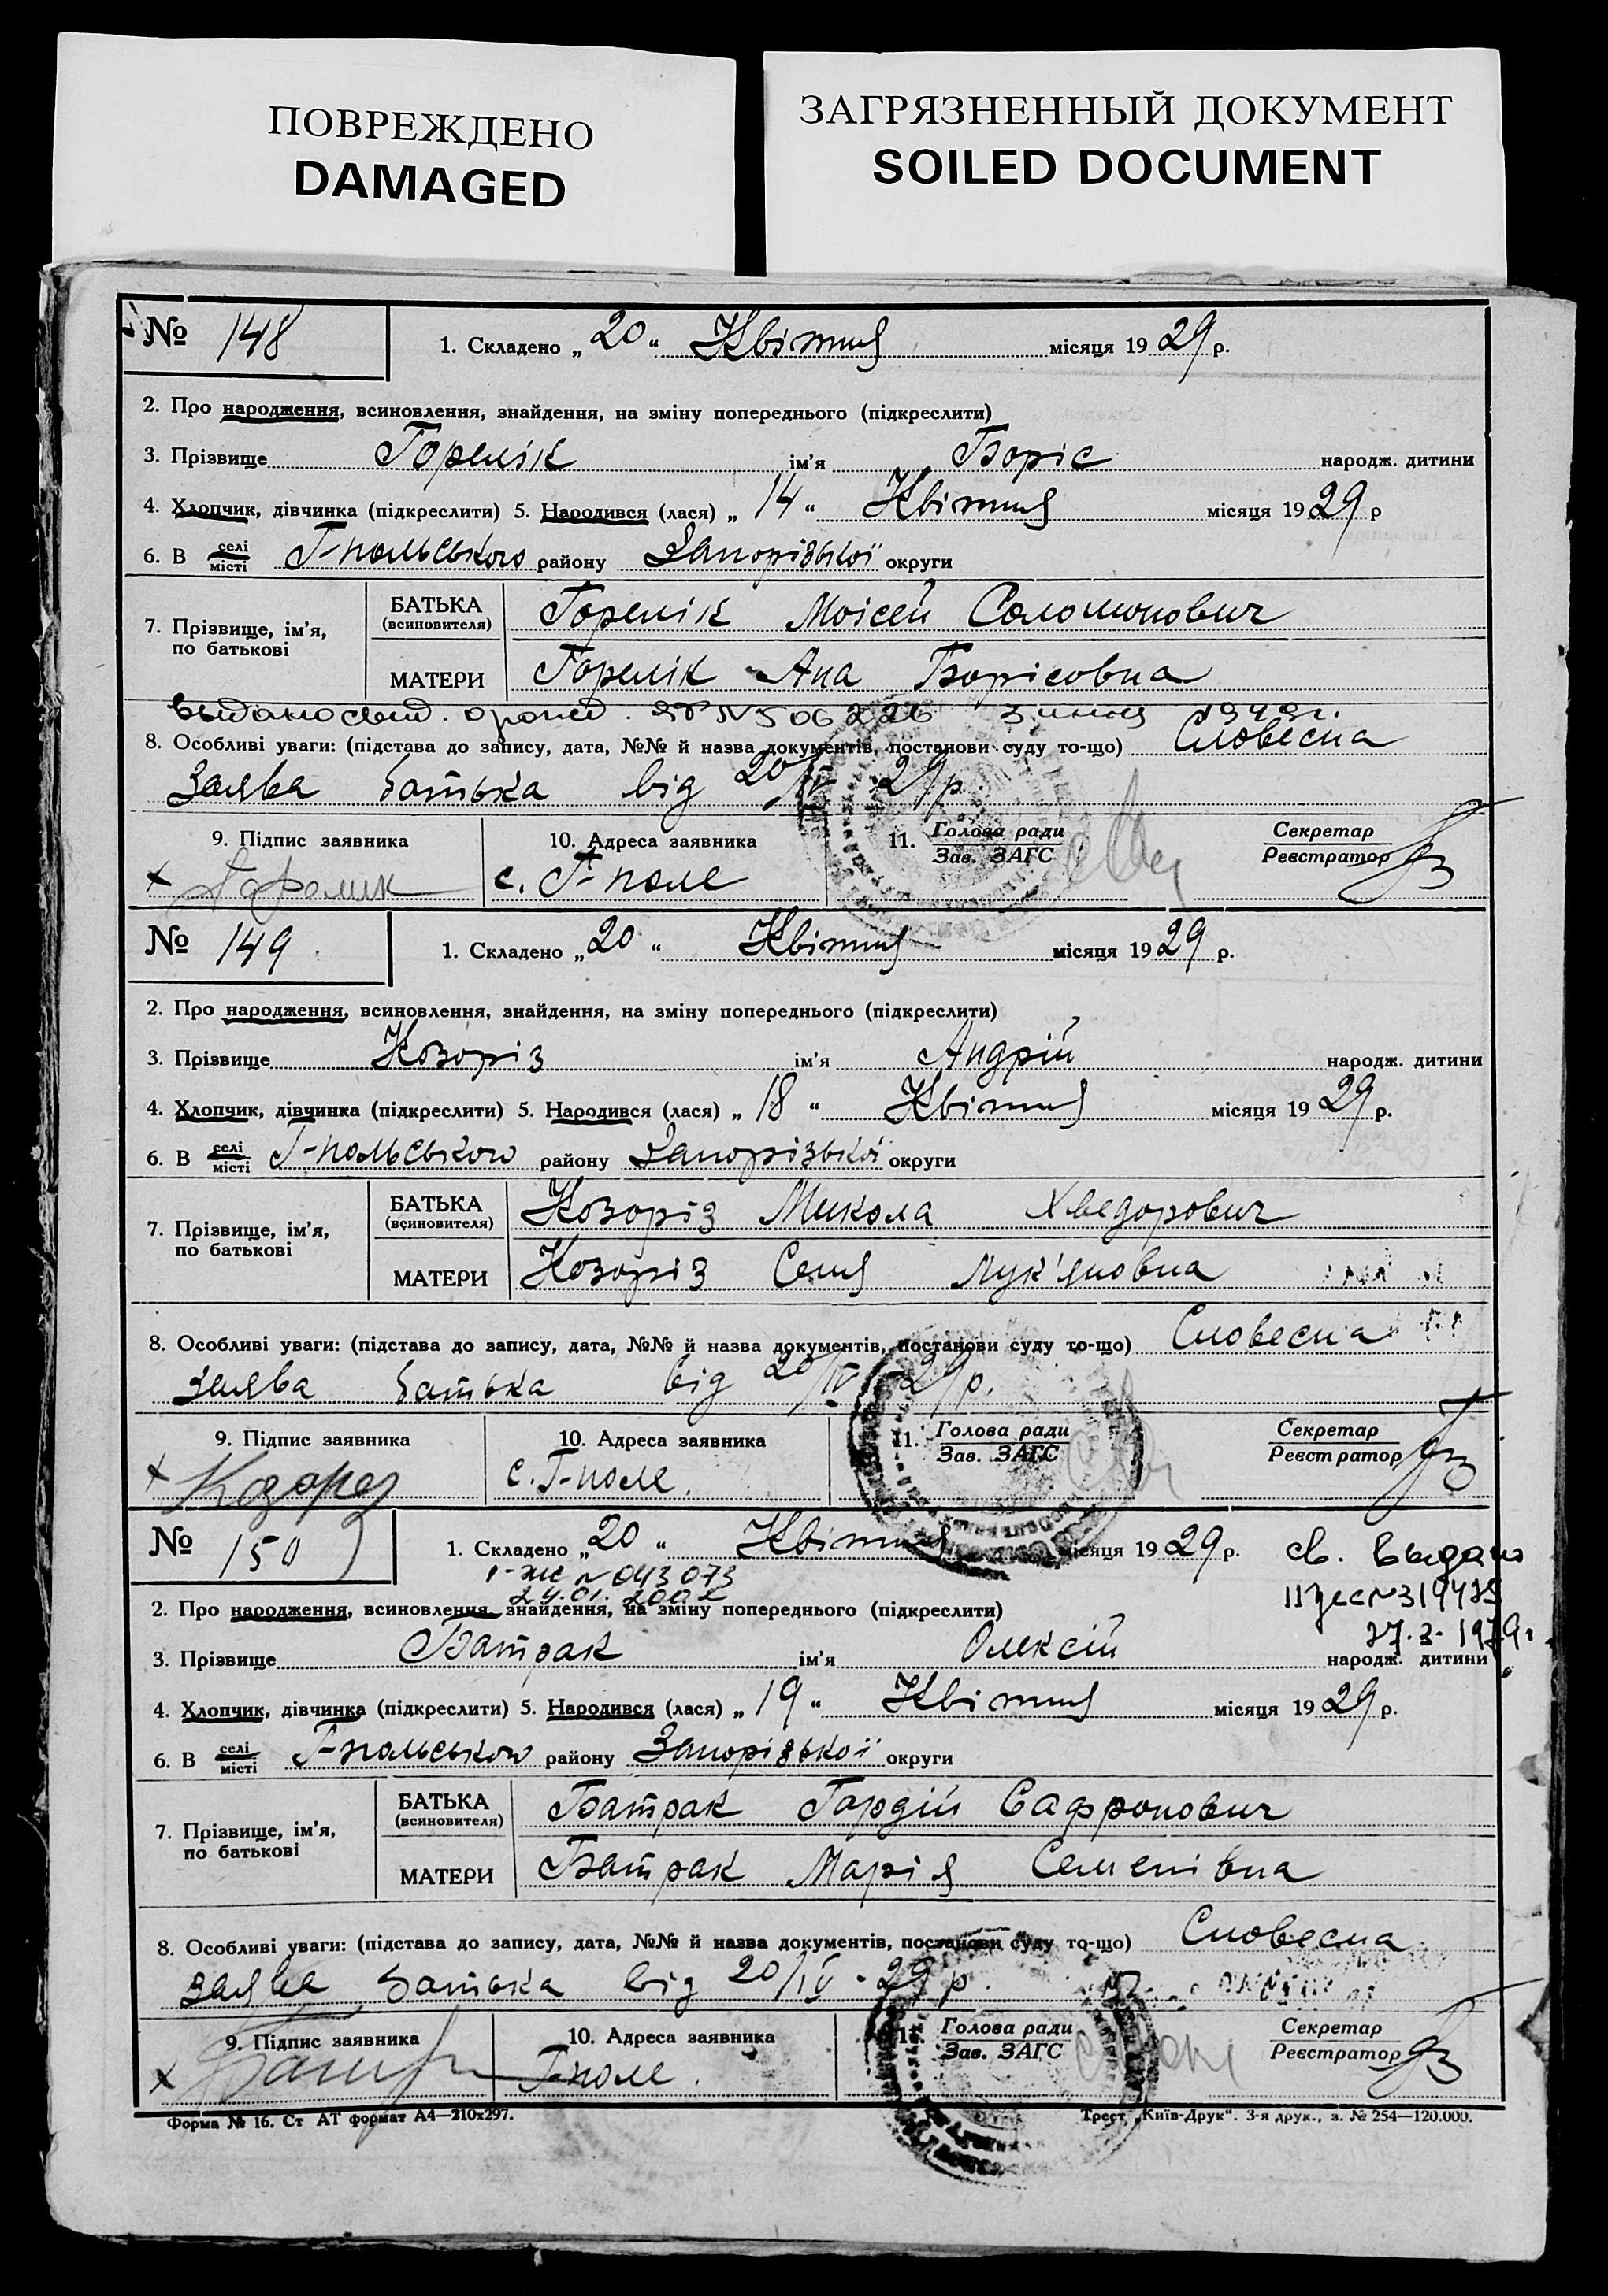 ПОВРЕЖДЕНО
DAMAGED
ЗАГРЯЗНЕННЫЙ ДОКУМЕНТ
SOILED DOCUMENT
№ 148
1. Складено „20“ Квітня місяця 1929 р.
2. Про народження, всиновлення, знайдення, на зміну попереднього (підкреслити)
3. Прізвище Горелік ім’я Боріс народж. дитини
4. Хлопчик, дівчинка (підкреслити) 5. Народився (лася) „14“ Квітня місяця 1929 р
6. В селі місті Г-польського району Запорізької округи
7. Прізвище, ім’я, по батькові
БАТЬКА (всиновителя) Горелік Моісей Соломонович
МАТЕРИ Горелік Ана Борісовна
Выдано свид. о рожд. ЯР N506226 3 июня 1949г.
8. Особливі уваги: (підстава до запису, дата, №№ й назва документів, постанови суду то-що) Словесна
Заява батька від 20/IV 29р.
9. Підпис заявника
10. Адреса заявника
11. Голова ради
Зав. ЗАГС
Секретар
Реєстратор
х Горелик
с. Г-поле
№ 149
1. Складено „20“ Квітня місяця 1929 р.
2. Про народження, всиновлення, знайдення, на зміну попереднього (підкреслити)
3. Прізвище Козоріз ім’я Андрій народж. дитини
4. Хлопчик, дівчинка (підкреслити) 5. Народився (лася) „18“ Квітня місяця 1929 р.
6. В селі місті Г-польського району Запорізької округи
7. Прізвище, ім’я, по батькові
БАТЬКА (всиновителя) Козоріз Микола Хведорович
МАТЕРИ Козоріз Соня Лук’яновна
8. Особливі уваги: (підстава до запису, дата, №№ й назва документів, постанови суду то-що) Словесна
Заява батька від 20/IV 29р.
9. Підпис заявника
10. Адреса заявника
11. Голова ради
Зав. ЗАГС
Секретар
Реєстратор
х Козорез
с. Г-поле.
№ 150
1. Складено „20“ Квітня місяця 1929 р.
св. Выдано
І-жс N 043073
24.01.2002
2. Про народження, всиновлення, знайдення, на зміну попереднього (підкреслити)
27.3.1979г.
3. Прізвище Батрак ім’я Олексій народж. дитини
4. Хлопчик, дівчинка (підкреслити) 5. Народився (лася) „19“ Квітня місяця 1929 р.
6. В селі місті Г-польського району Запорізької округи
7. Прізвище, ім’я, по батькові
БАТЬКА (всиновителя) Батрак Гордій Сафронович
МАТЕРИ Батрак Марія Семенівна
8. Особливі уваги: (підстава до запису, дата, №№ й назва документів, постанови суду то-що) Словесна
заява батька від 20/IV-29 р.
9. Підпис заявника
10. Адреса заявника
11. Голова ради
Зав. ЗАГС
Секретар
Реєстратор
х
Г-поле.
Форма № 16. Ст АТ формат А4—210х297.
Трест „Київ-Друк“. 3-я друк., з. № 254—120.000.